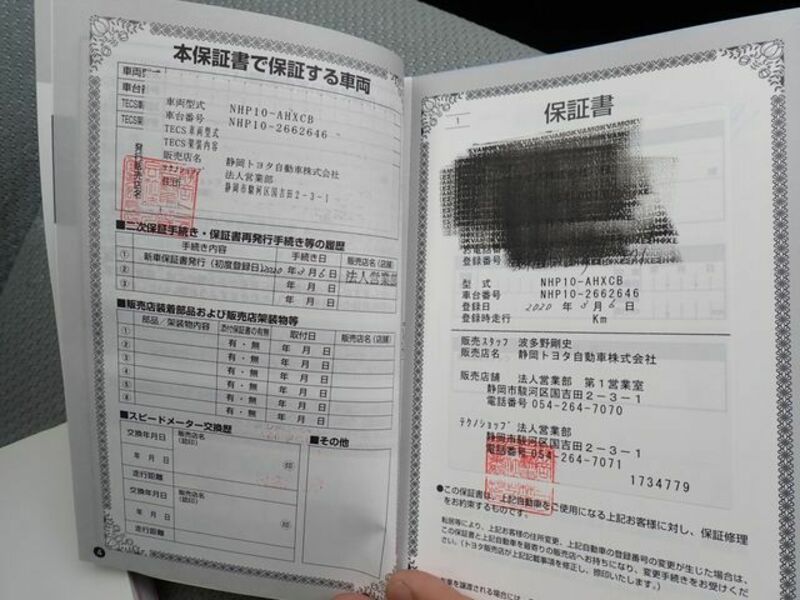 本保証書で保証する車両
車両型式 NHP10-AHXCB
車台番号 NHP10-2662646
TECS車両型式
TECS架装内容
販売店名 静岡トヨタ自動車株式会社
法人営業部
静岡市駿河区国吉田2-3-1
■二次保証手続き・保証書再発行手続き等の履歴
手続き内容 手続き日 販売店名(店舗)
① 新車保証書発行(初度登録日) 2020年3月6日 法人営業部
② 年 月 日
③ 年 月 日
■販売店装着部品および販売店架装物等
部品/架装物内容 添付保証書の有無 取付日 販売店名(店舗)
① 有・無 年 月 日
② 有・無 年 月 日
③ 有・無 年 月 日
④ 有・無 年 月 日
⑤ 有・無 年 月 日
⑥ 有・無 年 月 日
■スピードメーター交換歴
■その他
交換年月日 販売店名(認印)
年 月 日 印
走行距離
交換年月日 販売店名(認印)
年 月 日 印
走行距離
4
1
保証書
登録番号
型式 NHP10-AHXCB
車台番号 NHP10-2662646
登録日 2020年3月6日
登録時走行 Km
販売スタッフ 波多野剛史
販売店名 静岡トヨタ自動車株式会社
販売店舗 法人営業部 第1営業室
静岡市駿河区国吉田2-3-1
電話番号 054-264-7070
テクノショップ 法人営業部
静岡市駿河区国吉田2-3-1
電話番号 054-264-7071
1734779
●この保証書は、上記自動車をご使用になる上記お客様に対し、保証修理
をお約束するものです。
転居等により、上記お客様の住所変更、上記自動車の登録番号の変更が生じた場合は、
この保証書と上記自動車を最寄りの販売店へお持ちになり、変更手続きをお受けくだ
さい。(トヨタ販売店が上記記載事項を修正し、捺印いたします。)